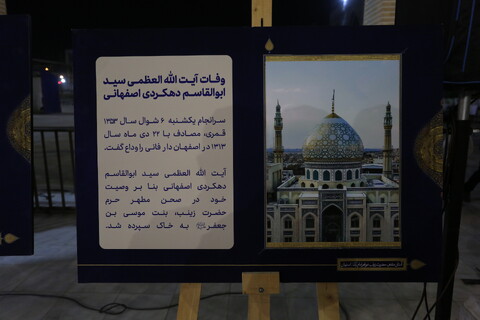 وفات آیت الله العظمی سید
ابوالقاسم دهکردی اصفهانی
سرانجام یکشنبه ۶ شوال سال ۱۳۵۳
قمری، مصادف با ۲۲ دی ماه سال
۱۳۱۳ در اصفهان دار فانی را وداع گفت.
آیت الله العظمی سید ابوالقاسم
دهکردی اصفهانی بنا بر وصیت
خود در صحن مطهر حرم
حضرت زینب، بنت موسی بن
جعفر به خاک سپرده شد.